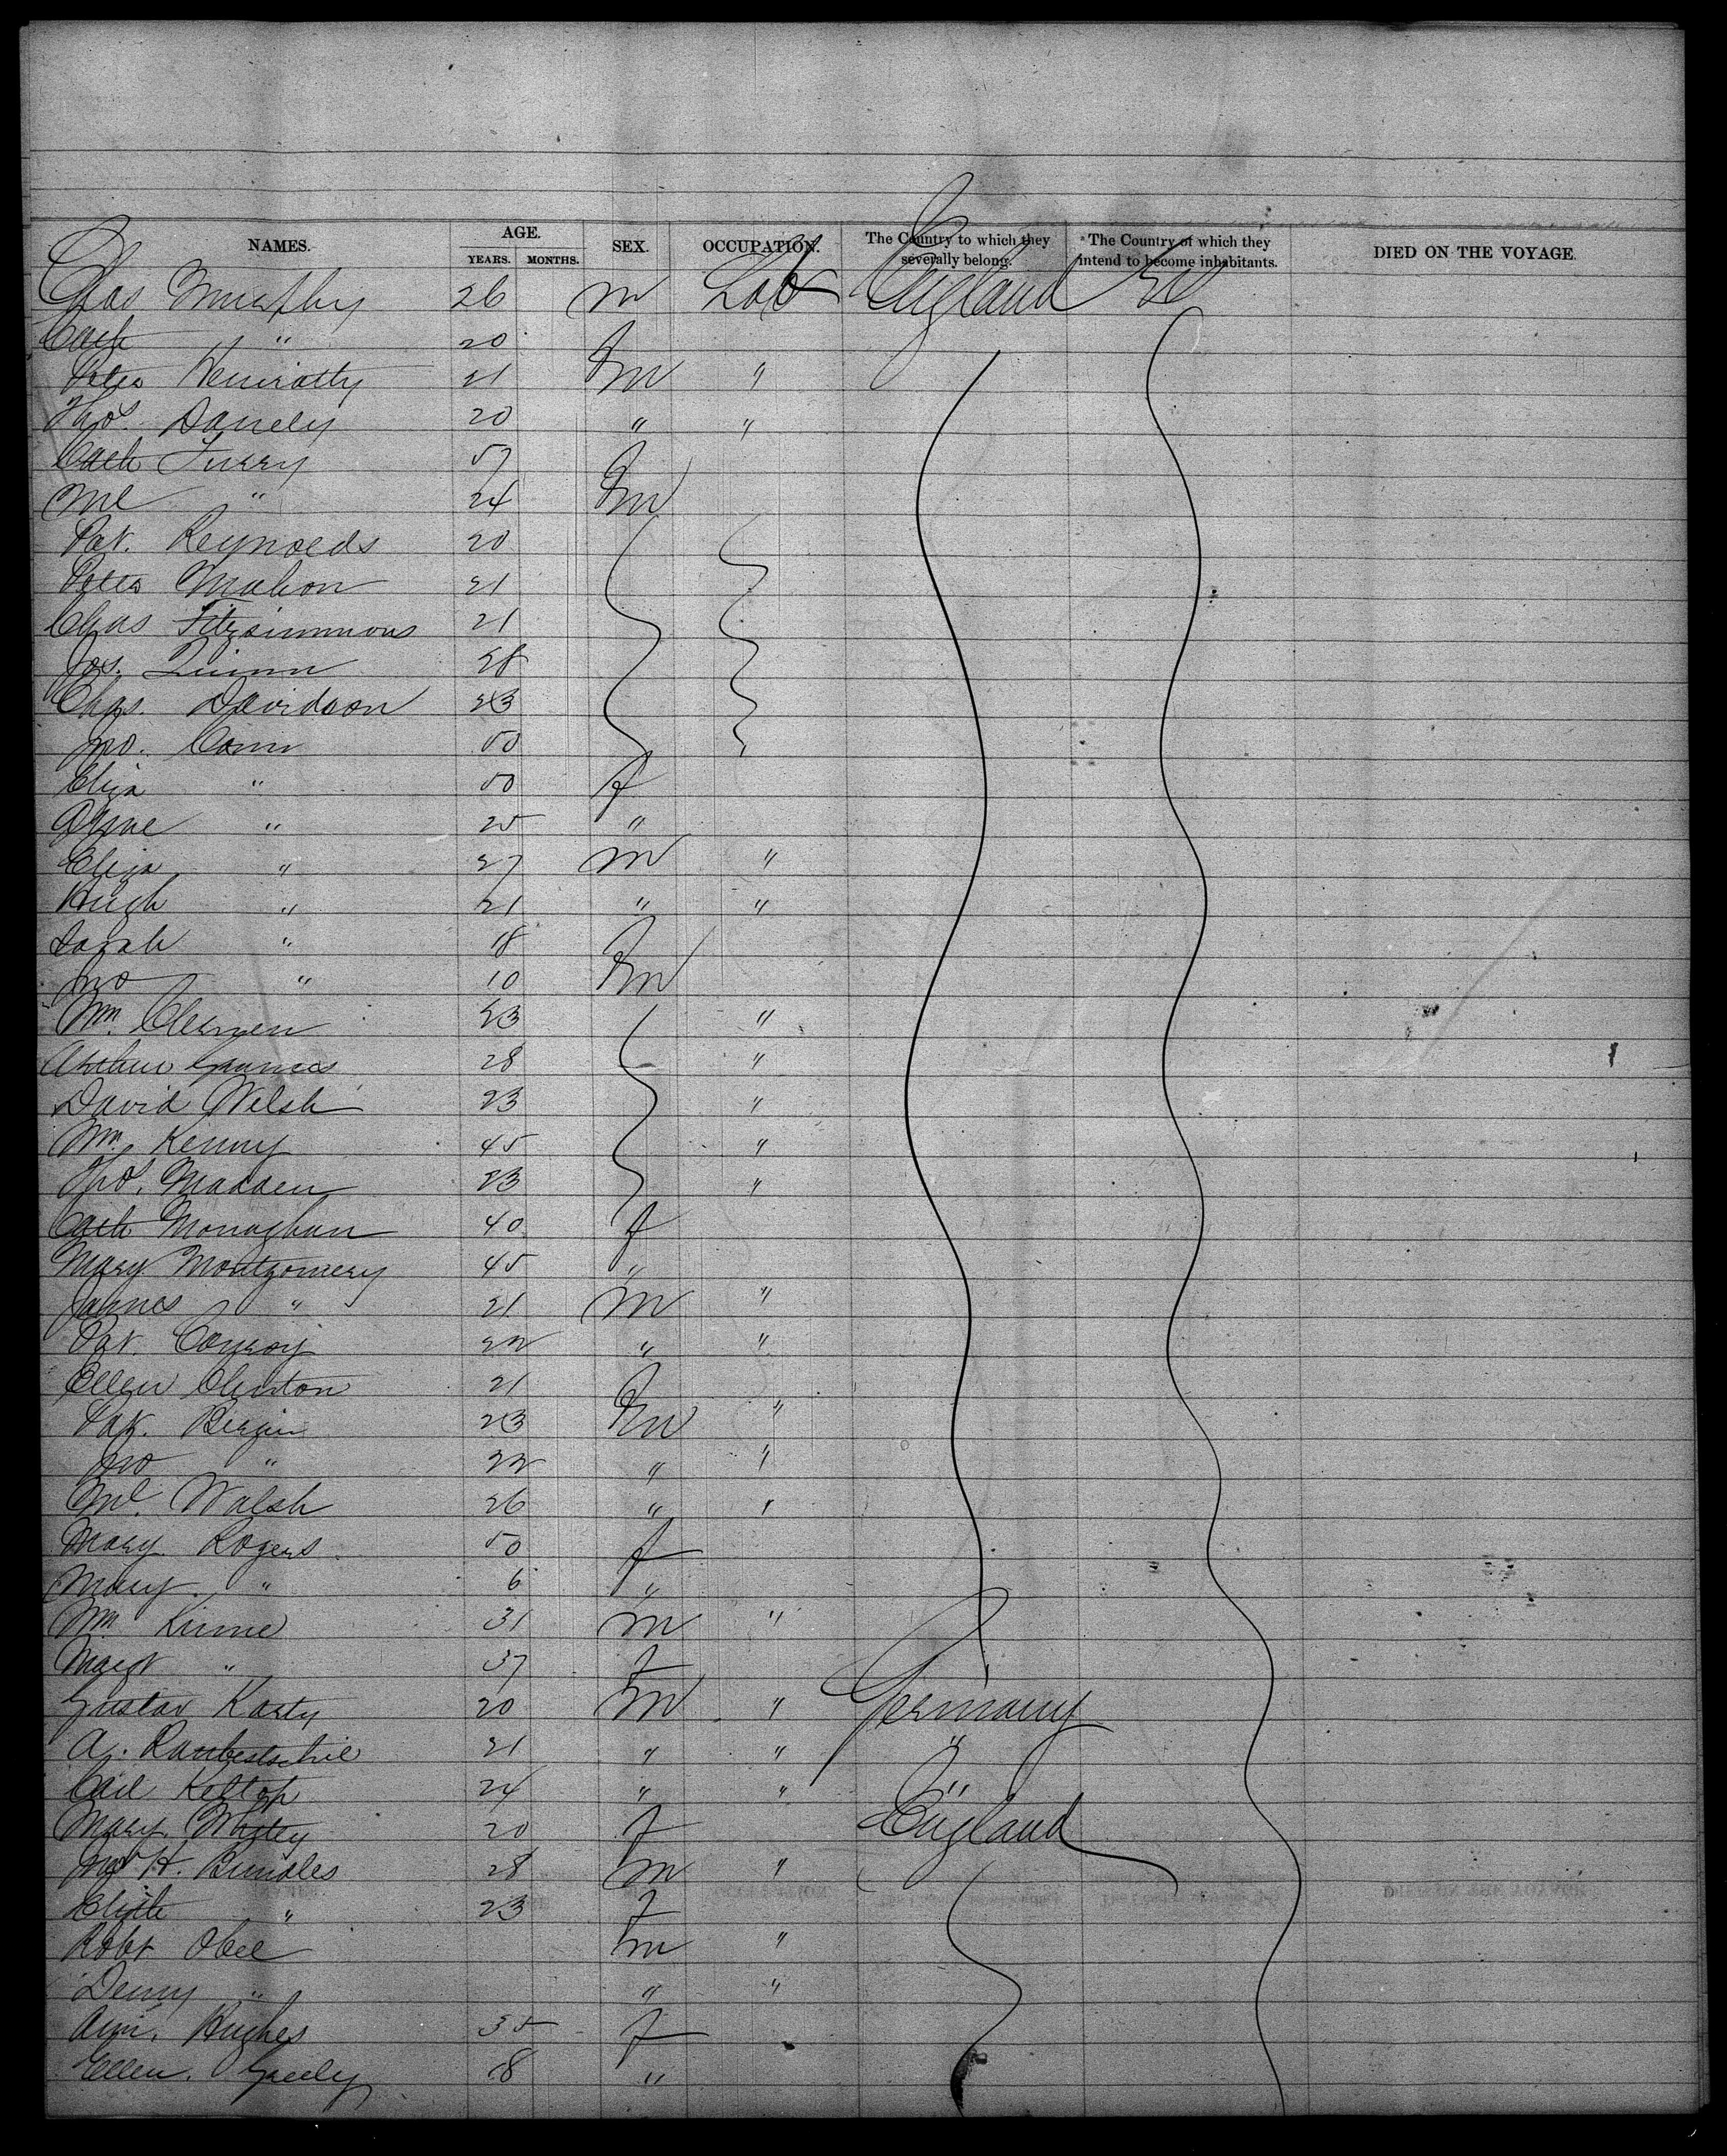 NAMES. AGE. SEX. OCCUPATION. The Country to which they severally belong. The Country of which they intend to become inhabitants. DIED ON THE VOYAGE.
YEARS. MONTHS.
Chas Murphy 26 m Lab England
Cath " 20
Peter 21 m "
Thos. Danely 20 " "
Cath Furry 57 f
Ml " 24 m
Pat. Reynolds 20
Peter Mahon 21
Chas Fitzsimmons 21
Jas. Quinn 28
Chas. Davidson 23
Jno. Conn 50
Eliza " 50 f
" 25 "
Eliza " 27 m "
Hugh " 21 " "
Sarah " 18 f
Jno " 10 m
Wm. 23 "
28 "
David Welsh 23 "
Wm. Kenny 45 "
Thos. Madden 23 "
Cath Monaghan 40 f
Mary Montgomery 45 "
James " 21 m "
Pat. Conroy 22 " "
Ellen Clinton 21 f
Pat. Bergin 23 m "
Jno " 22 " "
Ml. Walsh 26 " "
Mary Rogers 50 f
Mary " 6 "
Wm Kinne 31 m "
Margt " 37 f
Gustav Karty 20 m " Germany
A. 21 " " "
Carl 24 " " "
Mary 20 f England
H. Rundles 28 m "
" 23 f
Robt Obee m "
Denny " " "
Ann. Hughes 35 f
Ellen. Greely 18 "